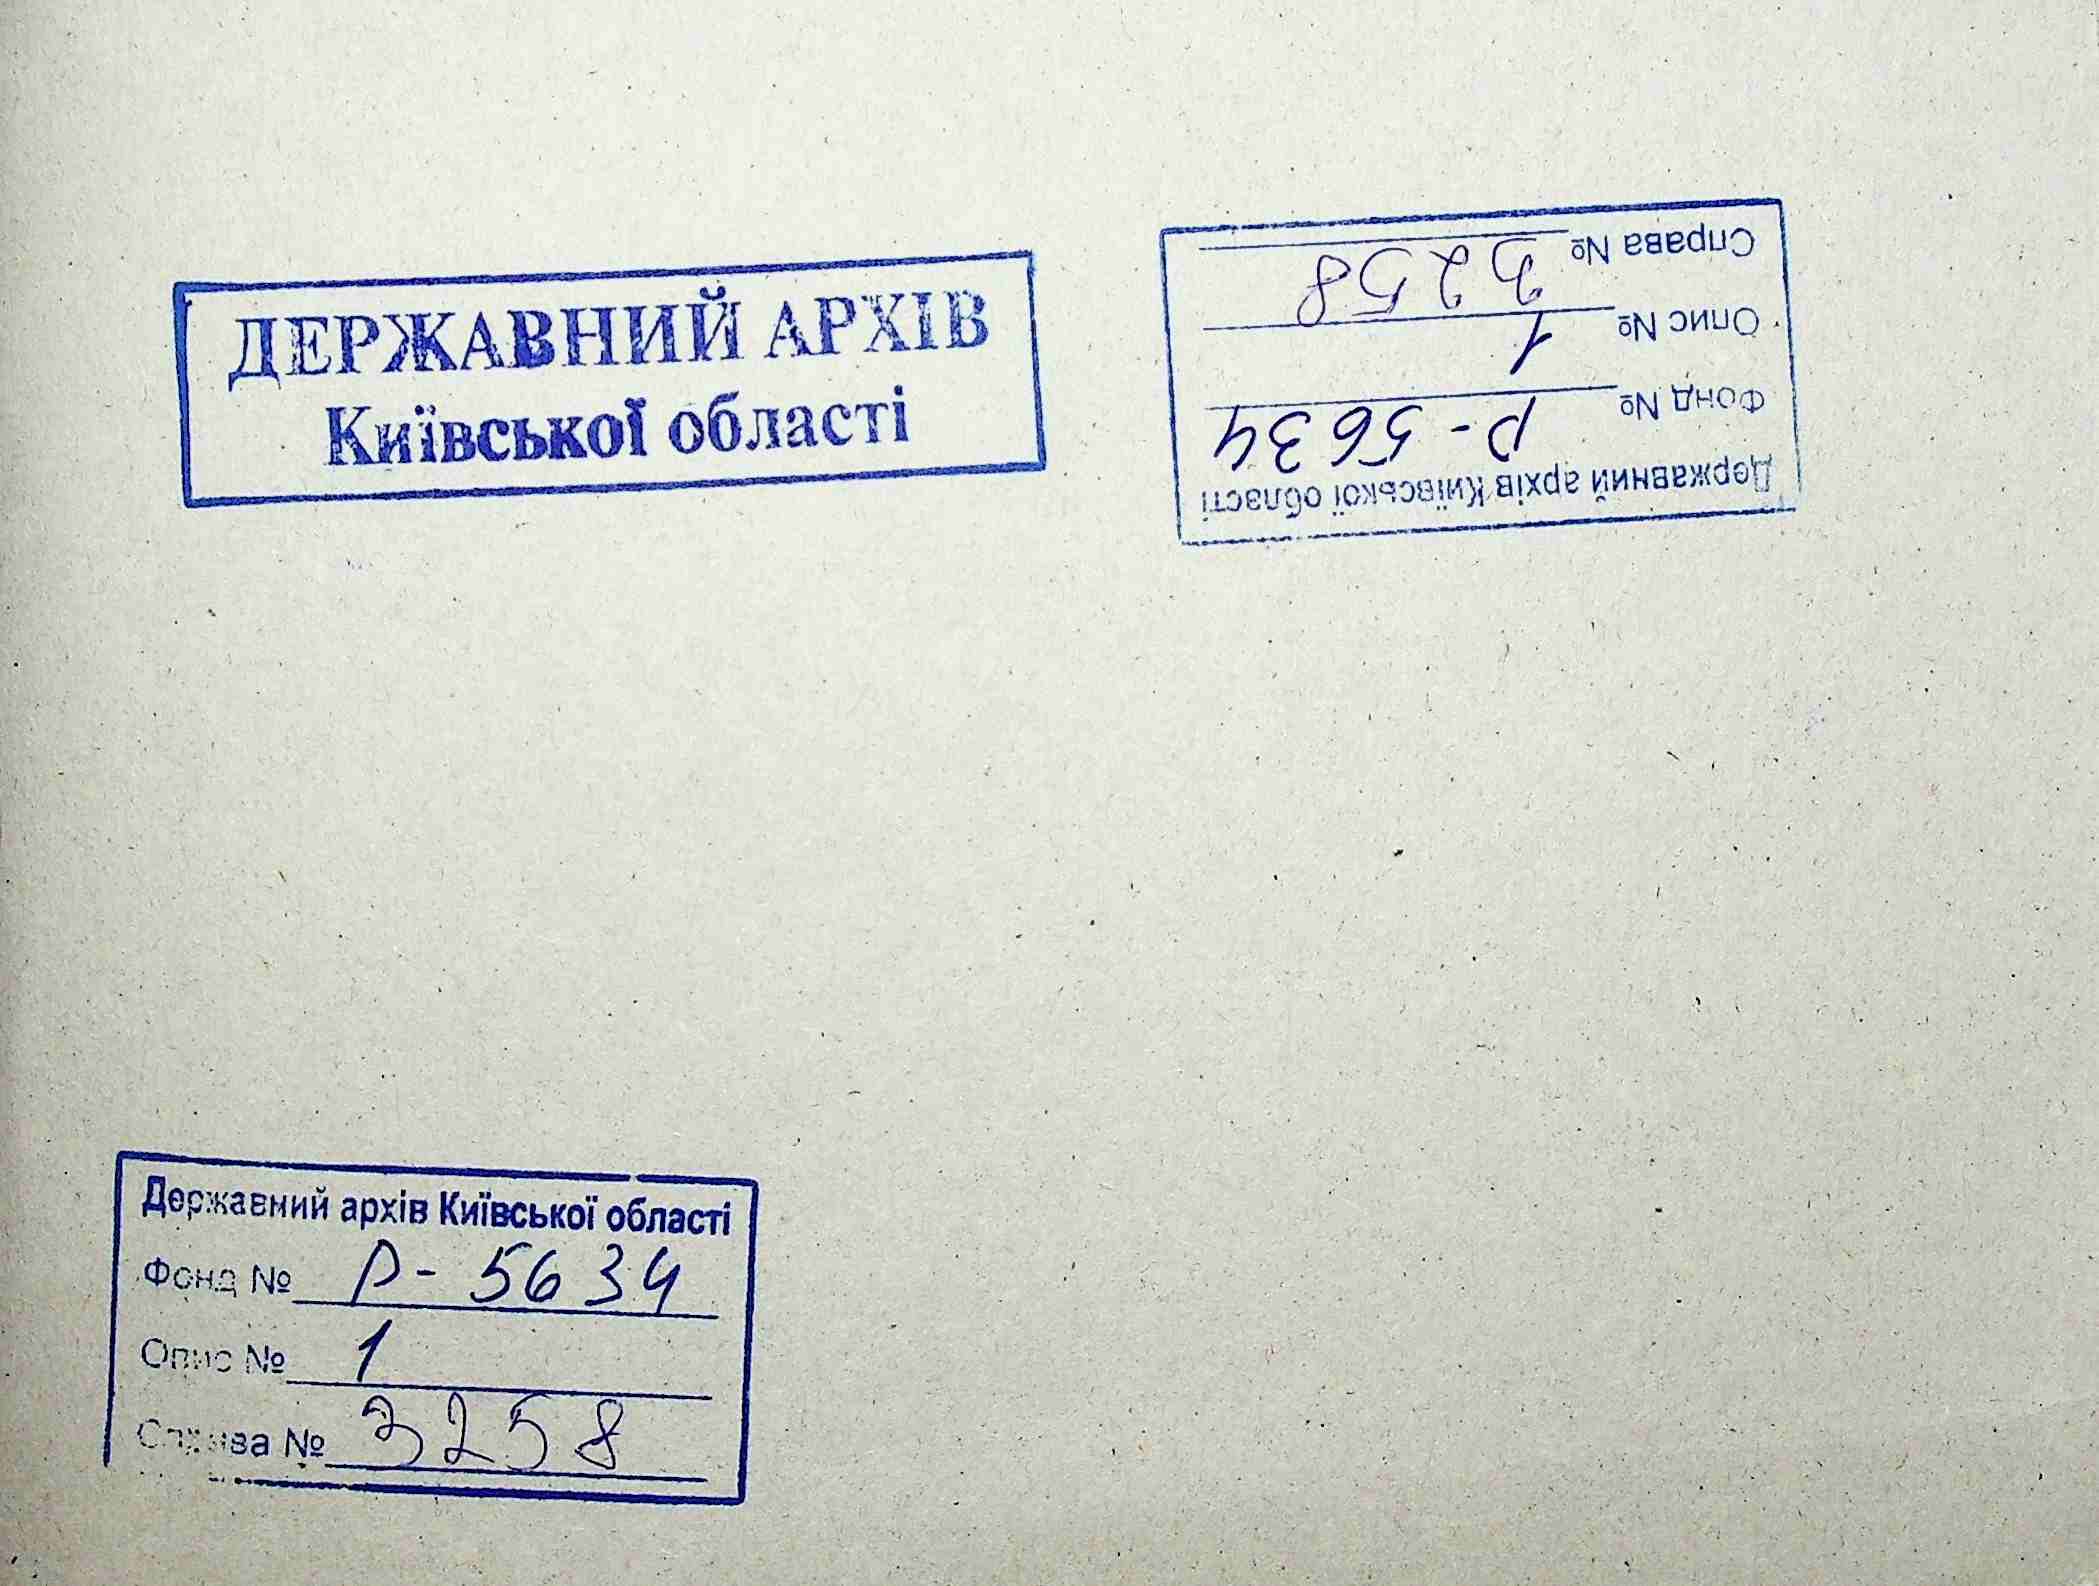 ДЕРЖАВНИЙ АРХІВ
Київської області
Державний архів Київської області
Фонд № Р-5634
Опис № 1
Справа № 3258
Державний архів Київської області
Фонд № Р-5634
Опис № 1
Справа № 3258